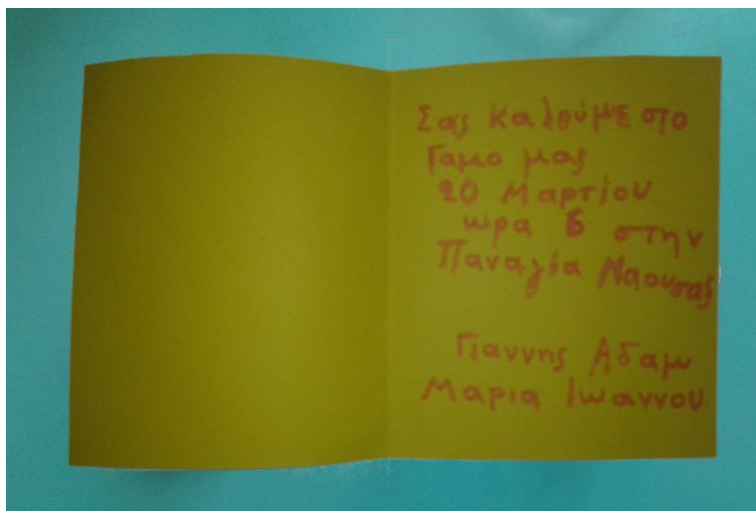 Σας καλούμε στο
Γαμο μας
20 Μαρτίου
ωρα 6 στην
Παναγία Ναουσας
Γιαννης Αδαμ
Μαρια Ιωαννου